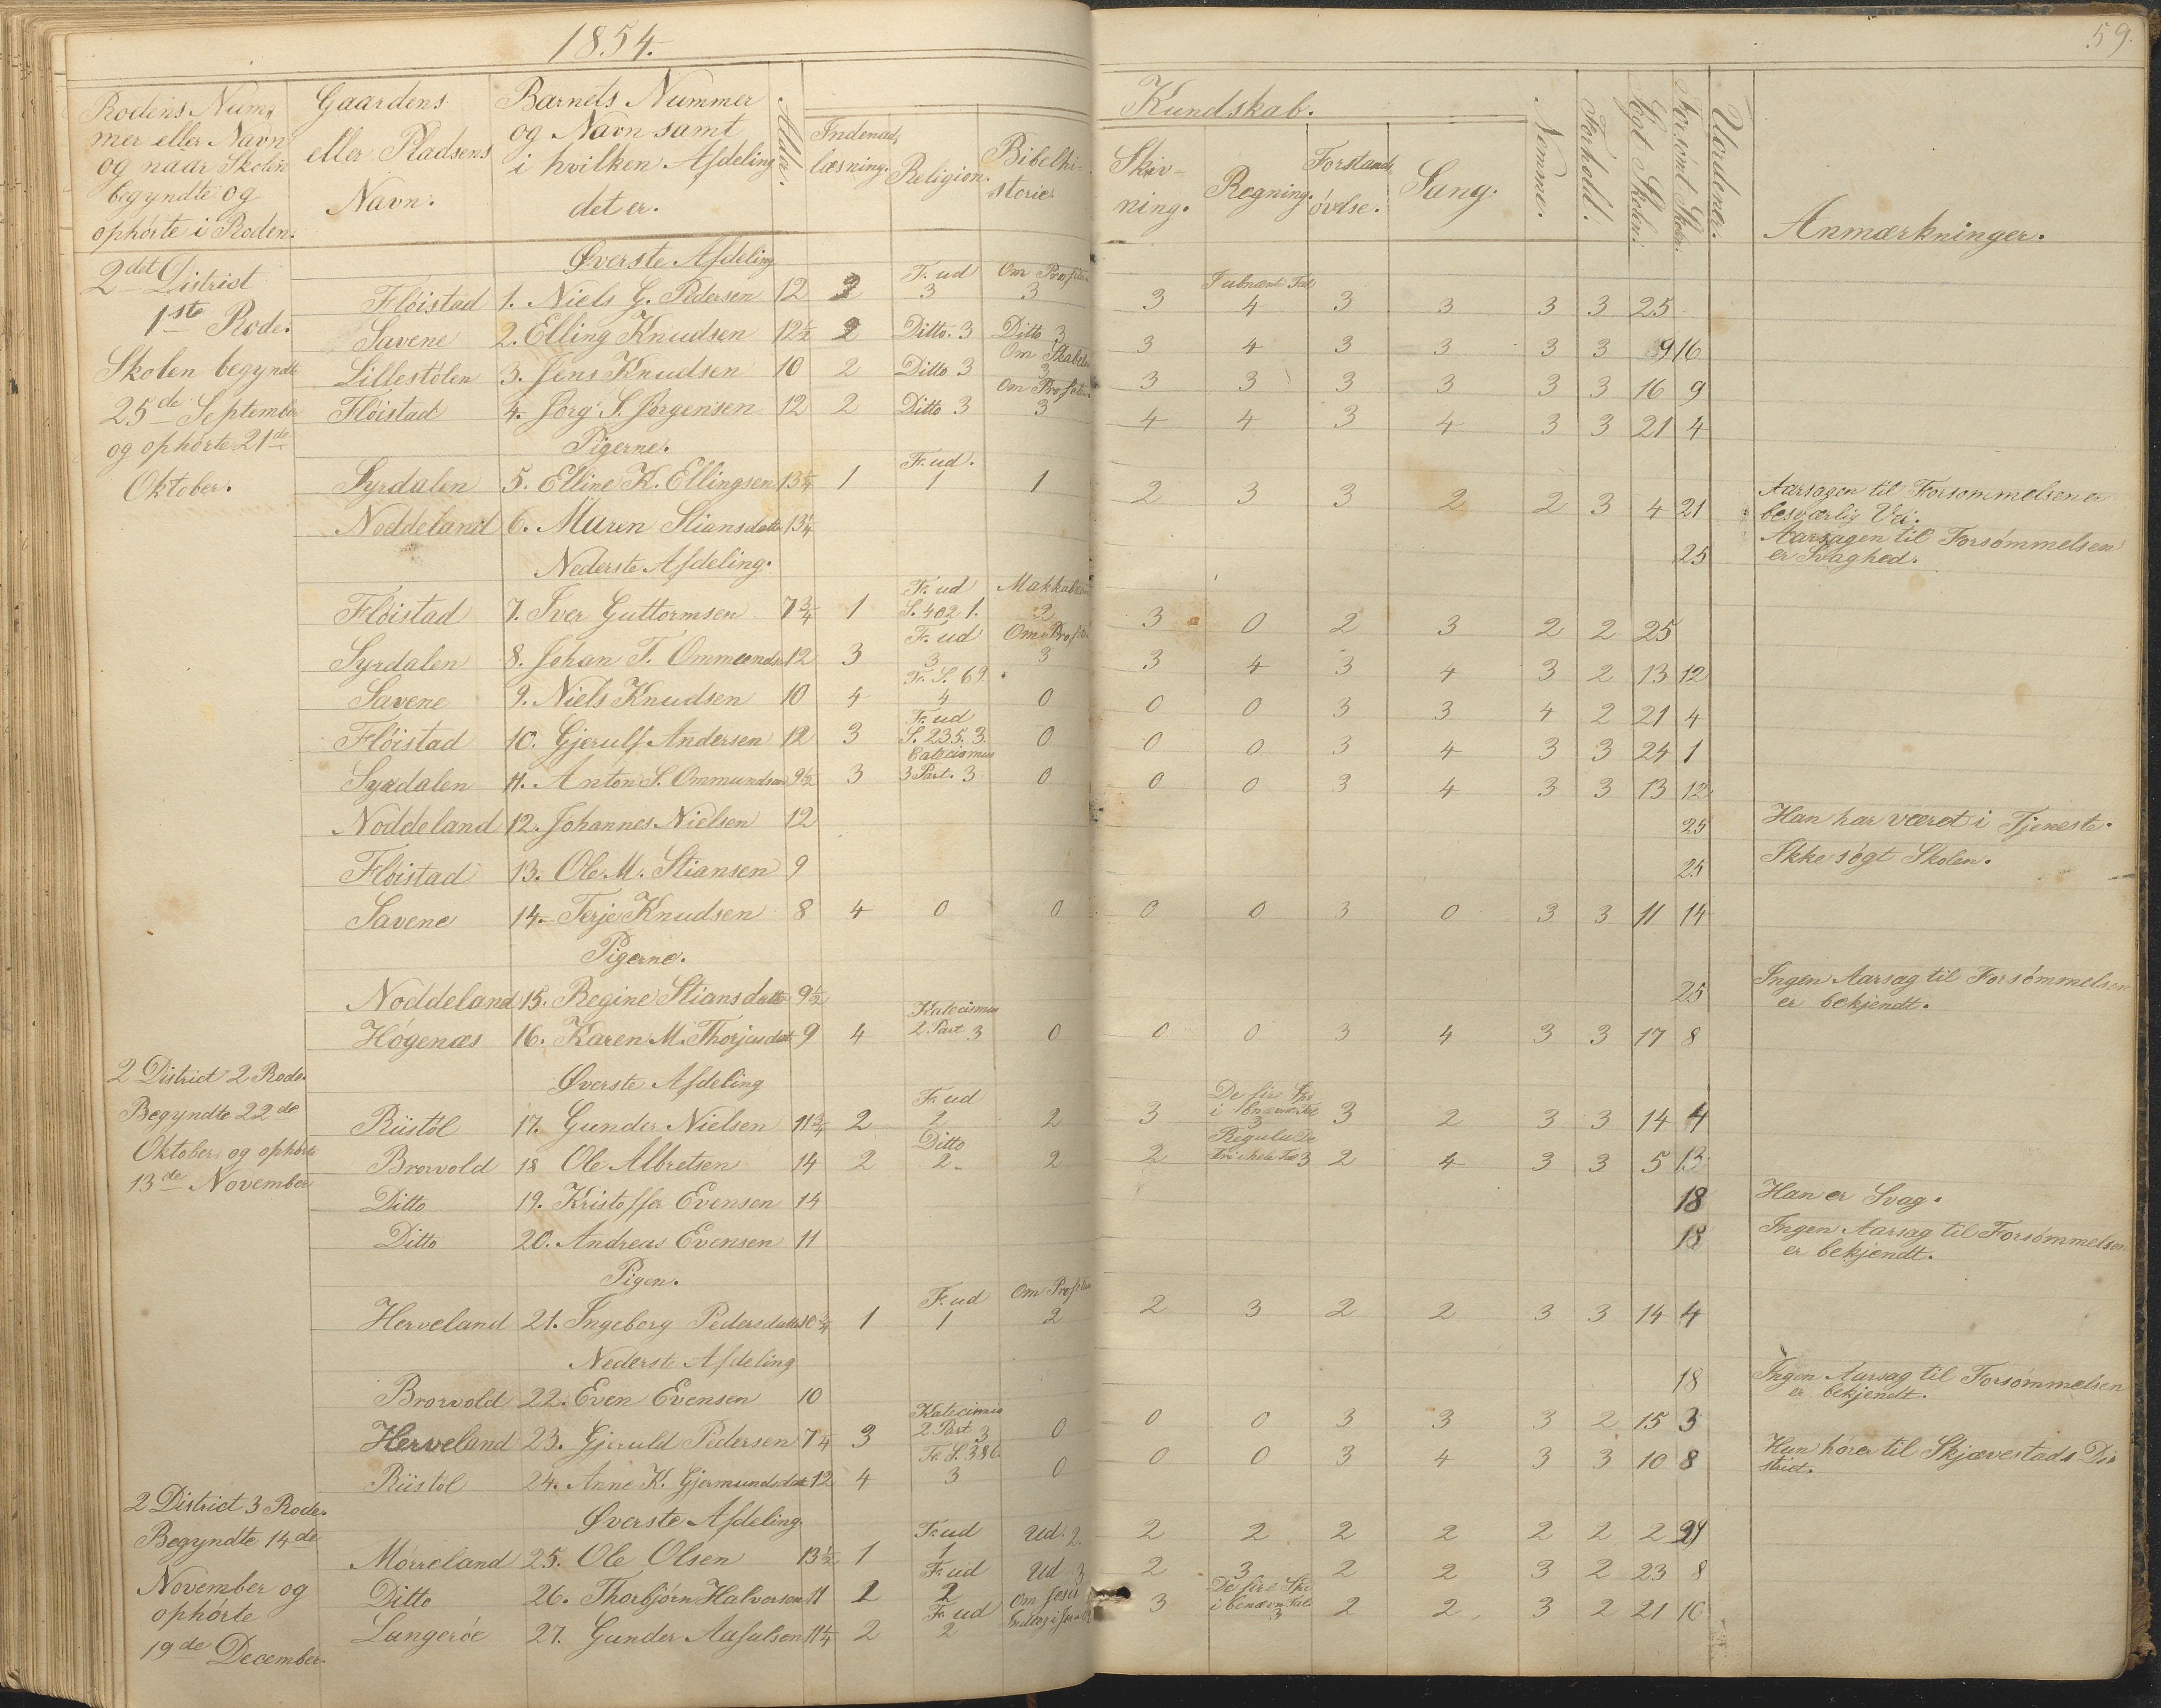 1854.
59.
Rodens Num-
mer eller Navn
og naar Skolen
begyndte og
ophørte i Roden.
Gaardens
eller Pladsens
Navn.
Barnets Nummer
og Navn samt
i hvilken Afdeling
det er.
Alder.
Kundskab.
Indenad-
læsning.
Religion.
Bibelhi-
storie.
Skriv-
ning.
Regning.
Forstands
øvelse.
Sang.
Nemme.
Forhold.
Søgt Skolen.
Forsømt Skolen.
Uordener.
Anmærkninger.
2det District
1ste Rode.
Skolen begyndte
25de September
og ophørte 21de
Oktober.
Øverste Afdeling
F. ud Om Profeten
Fløistad 1. Niels G. Pedersen 12 3 3 3 3 4 3 3 3 3 25
Savene 2. Elling Knudsen 12½ 2 Ditto. 3 Ditto 3 3 4 3 3 3 3 9 16
Om Skabelsen
Lillestølen 3. Jens Knudsen 10 2 Ditto 3 3 3 3 3 3 3 3 16 9
Om Profeten
Fløistad 4. Jørg S. Jørgensen 12 2 Ditto 3 3 4 4 3 4 3 3 21 4
Pigerne.
F. ud.
Syrdalen 5. Elline K. Ellingsen 13¼ 1 1 1 2 3 3 2 2 3 4 21 Aarsagen til Forsømmelsen er
besværlig Vei.
Noddeland 6. Maren Stiansdatter 13¼ 25 Aarsagen til Forsømmelsen
er Svaghed.
Nederste Afdeling.
F. ud Makkabæerne
Fløistad 7. Iver Guttormsen 7¾ 1 S. 402 1. 2 3 0 2 3 2 2 25
F. ud Om Profeten
Syrdalen 8. Johan T. Ommundsen 12 3 3 3 3 4 3 4 3 2 13 12
Fr. S. 69.
Savene 9. Niels Knudsen 10 4 4 0 0 0 3 3 4 2 21 4
F. ud
Fløistad 10. Gjerulf Andersen 12 3 S. 235. 3. 0 0 0 3 4 3 3 24 1
Catecismus
Syrdalen 11. Anton S. Ommundsen 9½ 3 3 Part. 3 0 0 0 3 4 3 3 13 12
Noddeland 12. Johannes Nielsen 12 25 Han har været i Tjeneste.
Fløistad 13. Ole M. Stiansen 9 25 Ikke søgt Skolen.
Savene 14. Terje Knudsen 8 4 0 0 0 0 3 0 3 3 11 14
Pigerne.
Noddeland 15. Regine Stiansdatter 9½ 25 Ingen Aarsag til Forsømmelsen
er bekjendt.
Katecismus
Høgenæs 16. Karen M. Thorjusdat 9 4 2 Part 3 0 0 0 3 4 3 3 17 8
2 District 2 Rode.
Begyndte 22de
Oktober og ophørte
13de November
Øverste Afdeling
F. ud De fire Spe
i benævnte Tal
Riistøl 17. Gunder Nielsen 11¾ 2 2 2 3 3 3 2 3 3 14 4
Ditto Regula De
Brovold 18 Ole Albretsen 14 2 2 2 2 Tri i hele Tal 3 2 4 3 3 5 13
Ditto 19. Kristoffer Evensen 14 18 Han er Svag.
Ditto 20. Andreas Evensen 11 18 Ingen Aarsag til Forsømmelsen
er bekjendt.
Pigen.
F. ud Om Profeten
Herveland 21. Ingeborg Pedersdatter 10¾ 1 1 2 2 3 2 2 3 3 14 4
Nederste Afdeling
Brovold 22. Even Evensen 10 18 Ingen Aarsag til Forsømmelsen
er bekjendt.
Katecismus
Herveland 23. Gjeruld Pedersen 7¼ 3 2 Part 3 0 0 0 3 3 3 2 15 3
Fr. S. 386
Riistøl 24. Anne K. Gjermundsdat 12 4 3 0 0 0 3 4 3 3 10 8 Hun hører til Skjævestads Di-
strict.
2 District 3 Rode.
Begyndte 14de
November og
ophørte
19de December.
Øverste Afdeling.
F. ud Ud. 2.
Mørreland 25. Ole Olsen 13½ 1 1 2 2 2 2 2 2 2 29
F. ud Ud 3
Ditto 26. Thorbjørn Halvorsen 11 2 2 2 3 2 2 3 2 23 8
F. ud Om Jesu De fire Spe
i benævn Tal
Langerøe 27. Gunder Aasulsen 11¼ 2 2 3 3 2 2 3 2 21 10